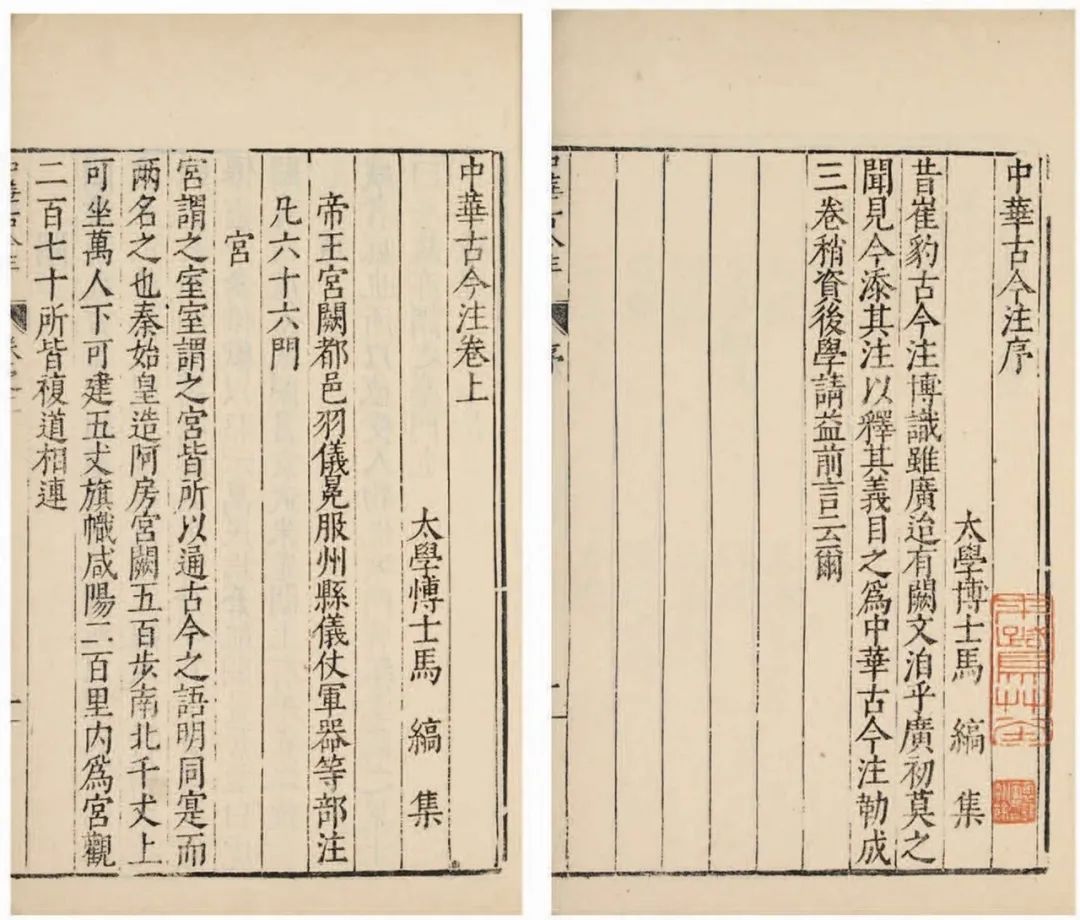 中華古今注序
太學博士馬 縞 集
昔崔豹古今注博識雖廣迨有闕文洎乎廣初莫之
聞見今添其注以釋其義目之爲中華古今注勒成
三卷稍資後學請益前言云爾
中華古今注卷上
太學愽士馬 縞 集
帝王宮闕都邑羽儀冕服州縣儀仗軍器等部注
凡六十六門
宮
宮謂之室室謂之宮皆所以通古今之語明同寔而
兩名之也秦始皇造阿房宮闕五百步南北千丈上
可坐萬人下可建五丈旗幟咸陽二百里內爲宮觀
二百七十所皆複道相連